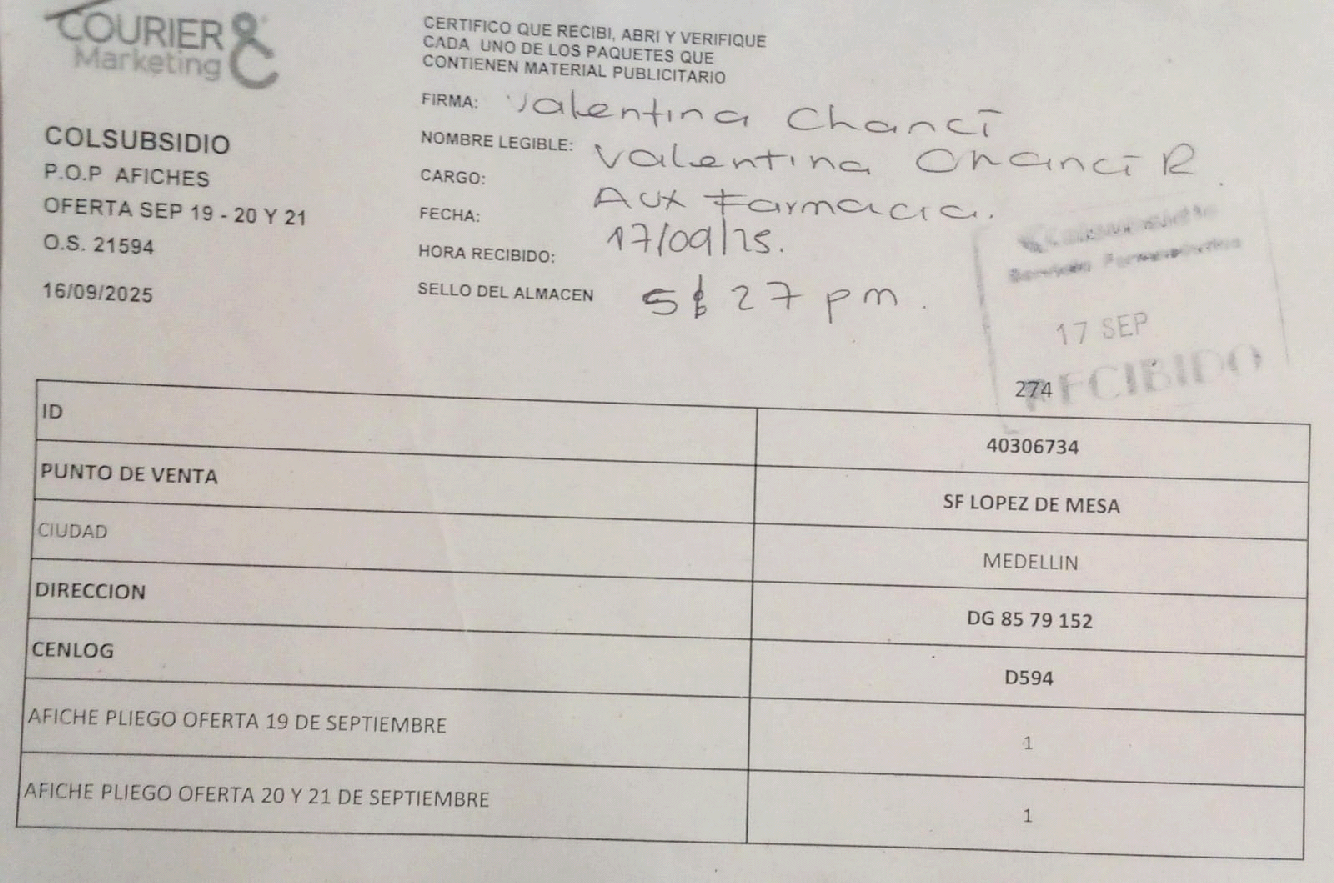 COURIER &
Marketing
COLSUBSIDIO
P.O.P AFICHES
OFERTA SEP 19 - 20 Y 21
O.S. 21594
16/09/2025
CERTIFICO QUE RECIBI, ABRI Y VERIFIQUE
CADA UNO DE LOS PAQUETES QUE
CONTIENEN MATERIAL PUBLICITARIO
FIRMA: Valentina Chancí
NOMBRE LEGIBLE: Valentina Chancí R
CARGO: Aux Farmacia.
FECHA: 17/09/25.
HORA RECIBIDO: 5 27 pm.
SELLO DEL ALMACEN
17 SEP
RECIBIDO
274
ID 40306734
PUNTO DE VENTA SF LOPEZ DE MESA
CIUDAD MEDELLIN
DIRECCION DG 85 79 152
CENLOG D594
AFICHE PLIEGO OFERTA 19 DE SEPTIEMBRE 1
AFICHE PLIEGO OFERTA 20 Y 21 DE SEPTIEMBRE 1